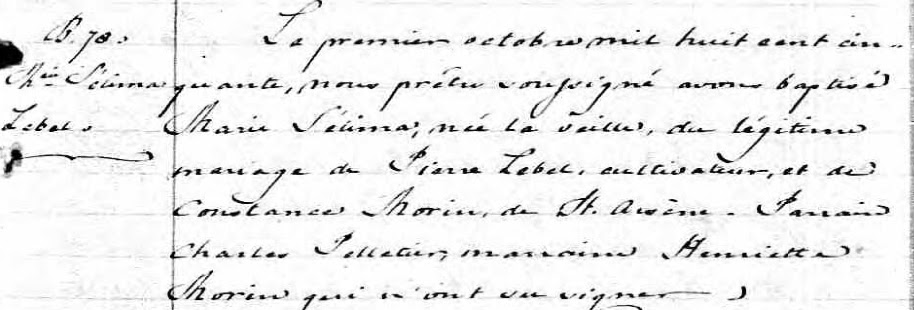 B. 78.
Mie Sélima
Lebel.
Le premier octobre mil huit cent cin-
quante, nous prêtre soussigné avons baptisé
Marie Sélima, née la veille, du légitime
mariage de Pierre Lebel, cultivateur, et de
Constance Morin, de St. Arsène. Parrain
Charles Pelletier, marraine Henriette
Morin qui n'ont su signer